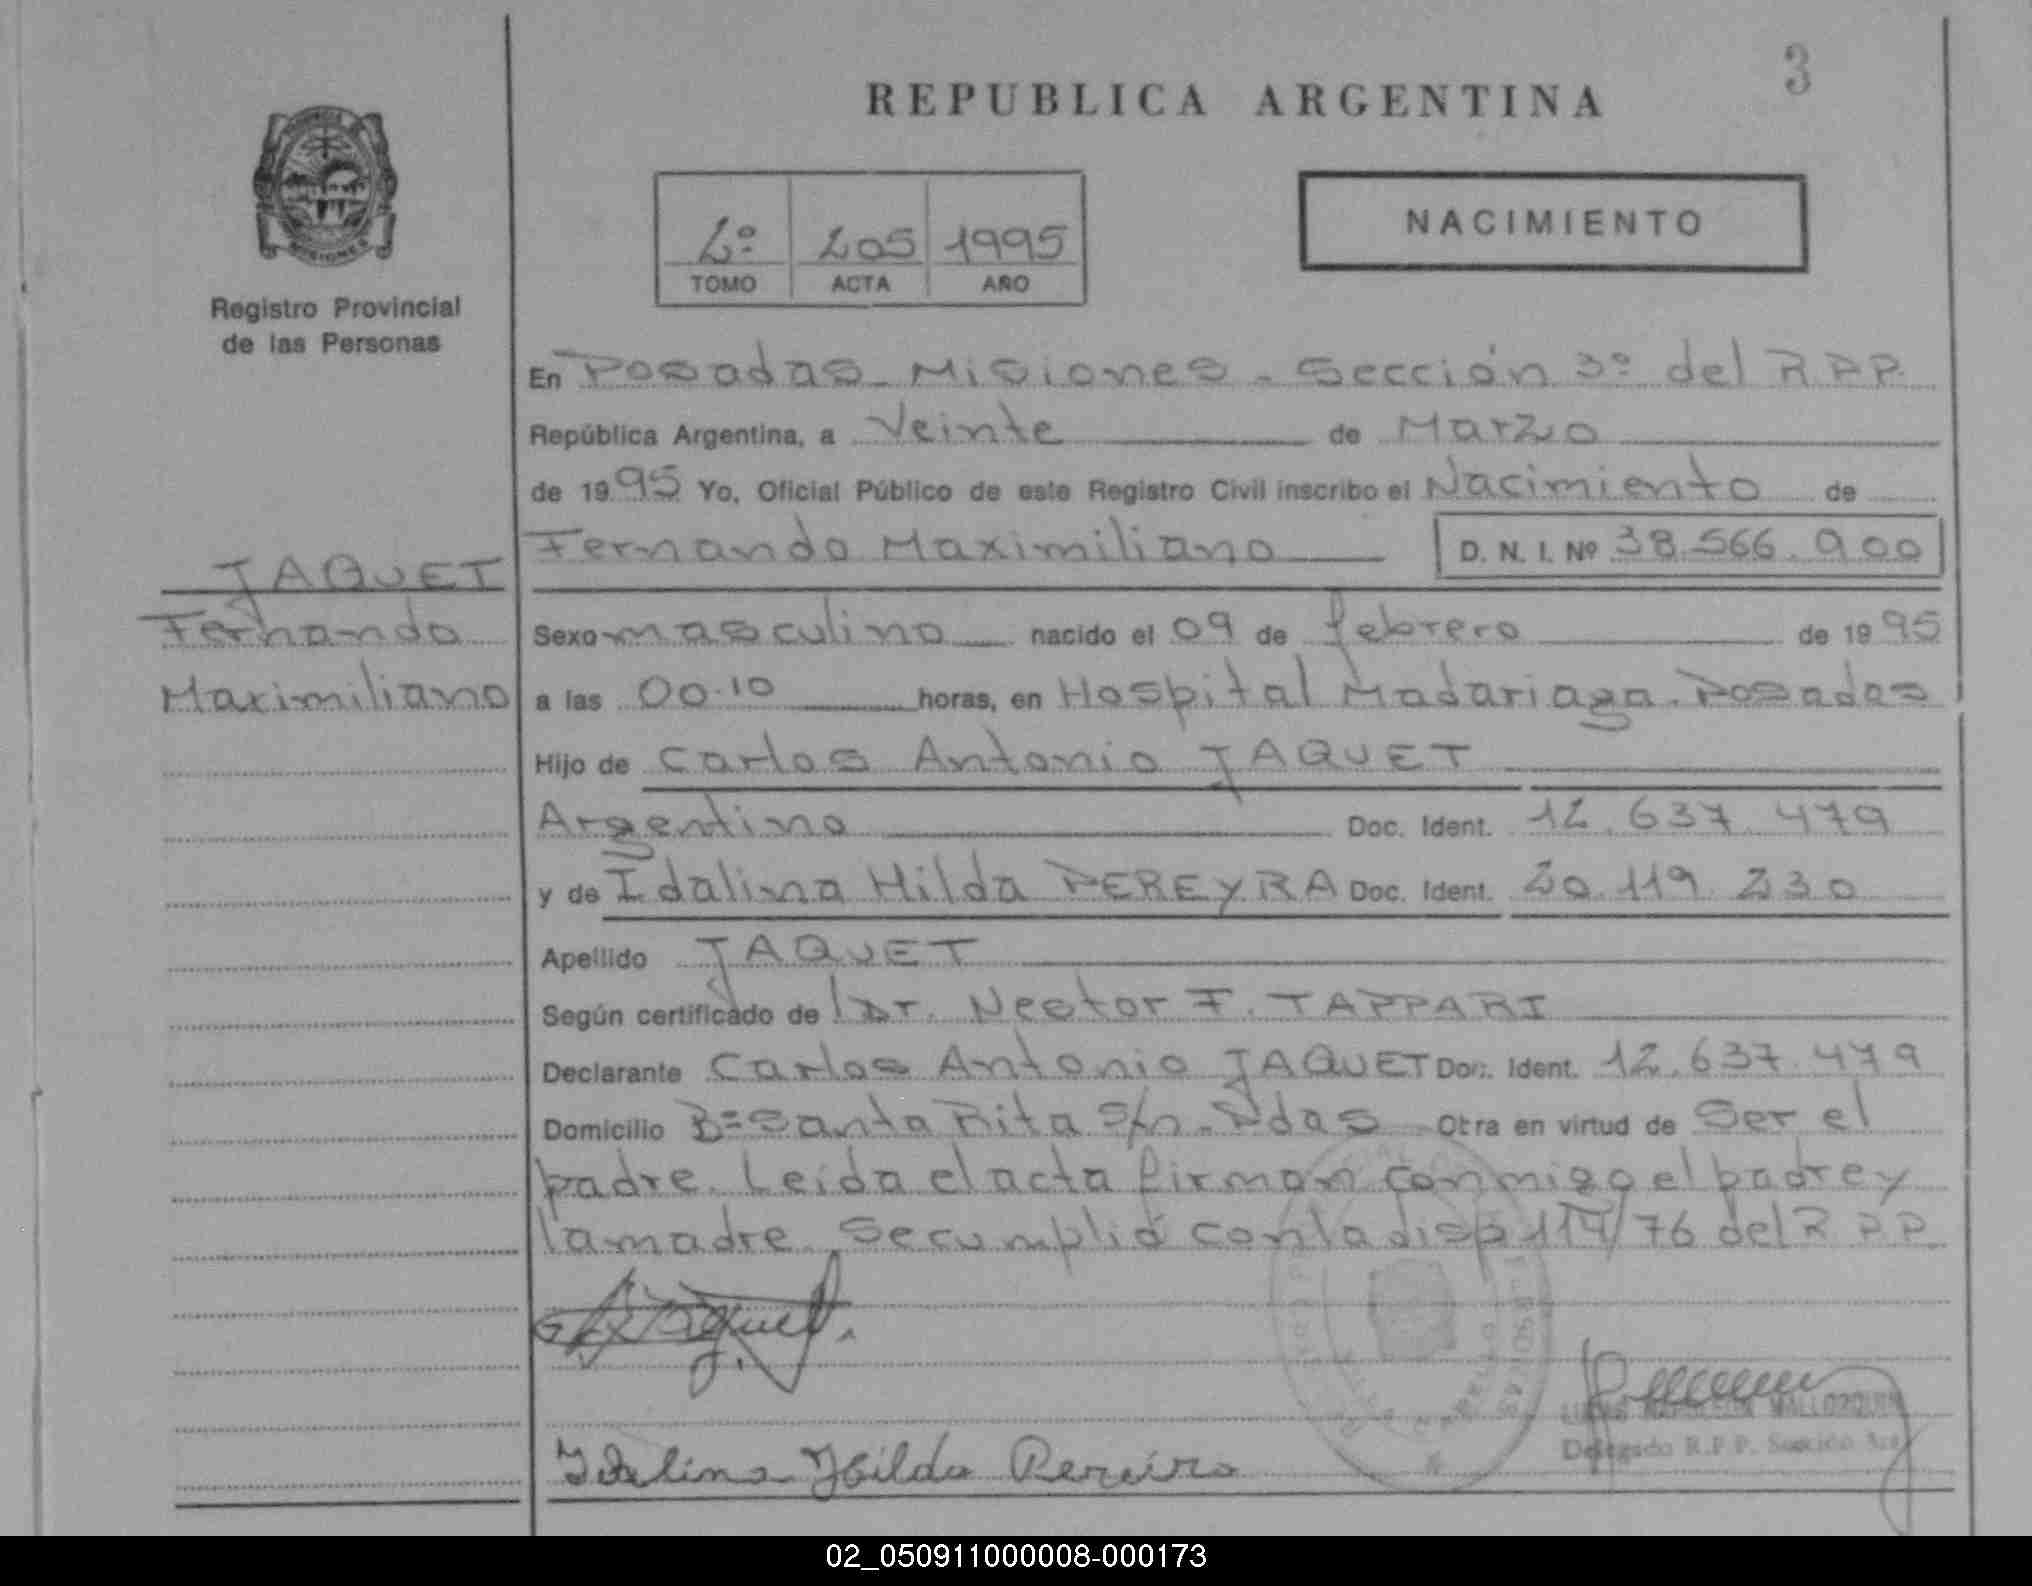 3
REPUBLICA ARGENTINA
MISIONES
Registro Provincial
de las Personas
2º 205 1995
TOMO ACTA AÑO
NACIMIENTO
En Posadas - Misiones - Sección 3º del R.P.P.
República Argentina, a Veinte de Marzo
de 1995 Yo, Oficial Público de este Registro Civil inscribo el Nacimiento de
Fernando Maximiliano D. N. I. Nº 38.566.900
JAQUET
Fernando
Maximiliano
Sexo masculino nacido el 09 de febrero de 1995
a las 00.10 horas, en Hospital Madariaga. Posadas
Hijo de Carlos Antonio JAQUET
Argentino Doc. Ident. 12.637.479
y de Idalina Hilda PEREYRA Doc. Ident. 20.119.230
Apellido JAQUET
Según certificado de l Dr. Nestor F. TAPPARI
Declarante Carlos Antonio JAQUET Doc. Ident. 12.637.479
Domicilio Bº Santa Rita S/n. Pdas Otra en virtud de Ser el
padre. Leída el acta firman conmigo el padre y
la madre. Se cumplió con la disp 114/76 del R.P.P.
Jaquet
Idalina Hilda Pereira
Delegado R.P.P. Sección 3ra
02_050911000008-000173